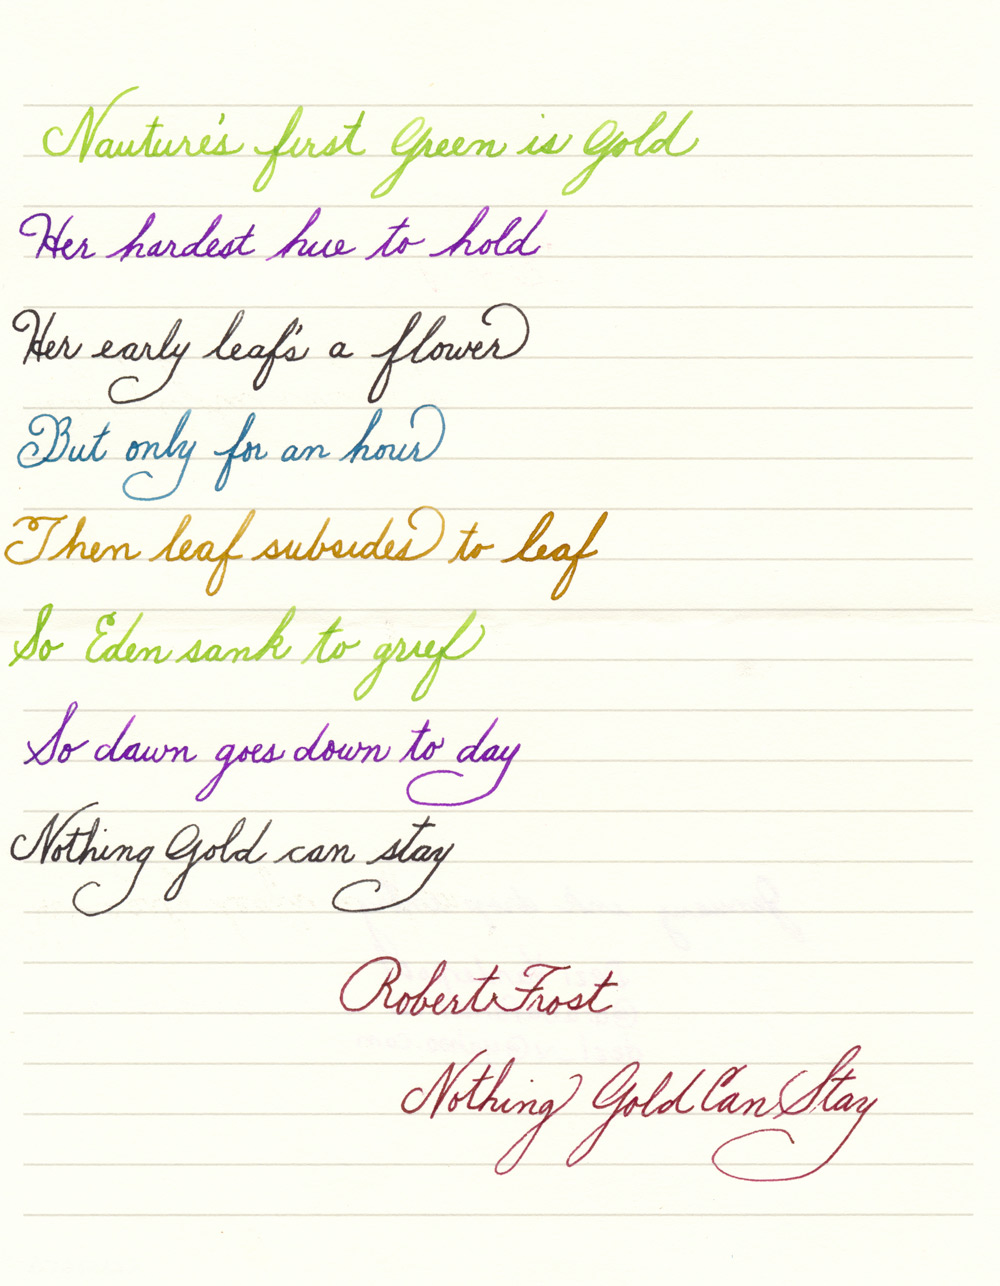 Nauture's first Green is Gold
Her hardest hue to hold
Her early leaf's a flower
But only for an hour
Then leaf subsides to leaf
So Eden sank to grief
So dawn goes down to day
Nothing Gold can stay
Robert Frost
Nothing Gold Can Stay